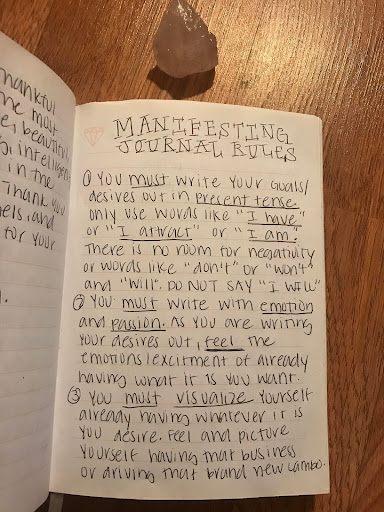 thankful
the most
e, beautiful,
intelligent
in the
Thank you
els, and
for your
MANIFESTING
JOURNAL RULES
① YOU must WRITE YOUR GOALS/
desires out in present tense.
only use words like "I have"
or "I attract" or "I am."
There is no room for negativity
or words like "don't" or "won't"
and "will". DO NOT SAY "I WILL"
② YOU must write with emotion
and passion. As you are writing
your desires out, feel the
emotions/excitment of already
having what it is you want.
③ YOU must visualize yourself
already having whatever it is
you desire. Feel and picture
yourself having that business
or driving that brand new lambo.